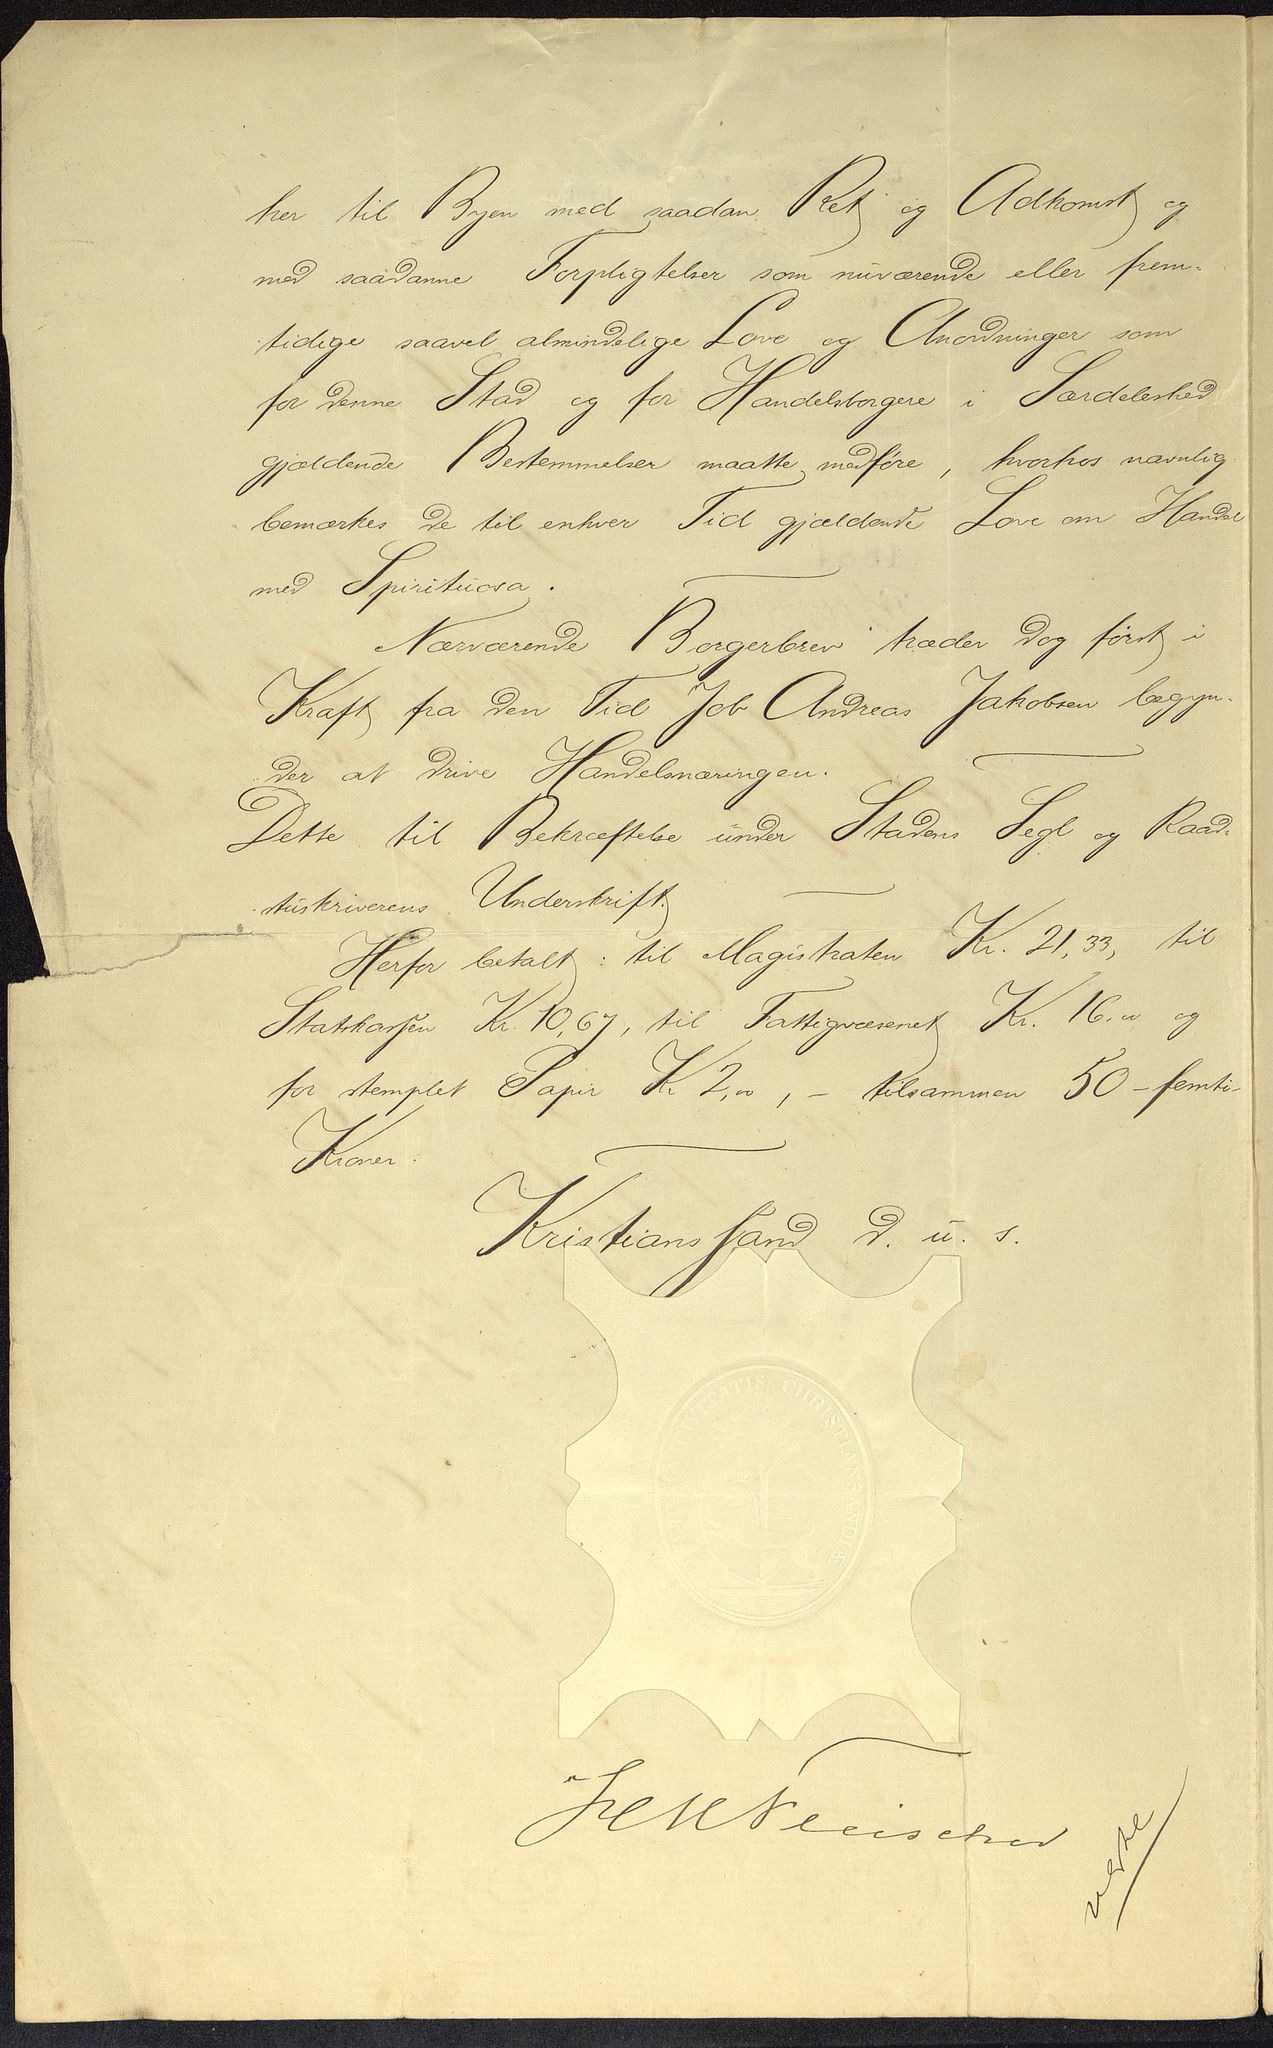 her til Byen med saadan Ret og Adkomst og
med saadanne Forpligtelser som nuværende eller frem-
tidige saavel almindelige Love og Anordninger som
for denne Stad og for Handelsborgere i Særdeleshed
gjældende Bestemmelser maatte medføre, hvorhos navnlig
bemærkes de til enhver Tid gjældende Love om Handel
med Spirituosa.
Nærværende Borgerbrev træder dog først i
Kraft fra den Tid Job Andreas Jakobsen begyn-
der at drive Handelsnæringen.
Dette til Bekræftelse under Stadens Segl og Raad-
stuskriverens Underskrift.
Herfor betalt: til Magistraten Kr. 21,33, til
Statskassen Kr. 10,67, til Fattigvæsenet Kr. 16,00 og
for stemplet Papir Kr 2,00, - tilsammen 50 - femti -
Kroner.
Kristianssand d. u. s.
CIVITATIS CHRISTIANSANDIÆ